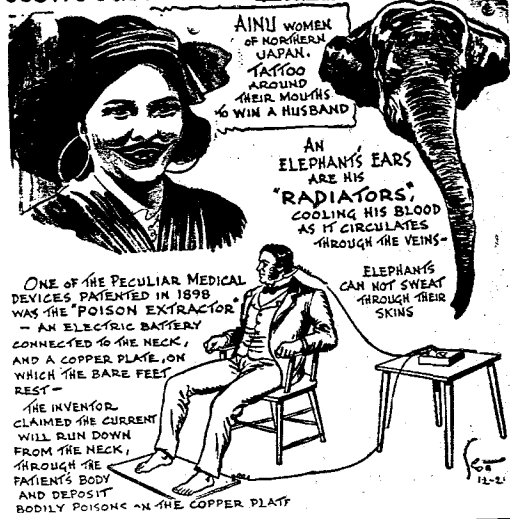 AINU WOMEN
OF NORTHERN
JAPAN,
TATTOO
AROUND
THEIR MOUTHS
TO WIN A HUSBAND
AN
ELEPHANT'S EARS
ARE HIS
"RADIATORS",
COOLING HIS BLOOD
AS IT CIRCULATES
THROUGH THE VEINS-
ELEPHANTS
CAN NOT SWEAT
THROUGH THEIR
SKINS
ONE OF THE PECULIAR MEDICAL
DEVICES PATENTED IN 1898
WAS THE "POISON EXTRACTOR"
- AN ELECTRIC BATTERY
CONNECTED TO THE NECK,
AND A COPPER PLATE, ON
WHICH THE BARE FEET
REST-
THE INVENTOR
CLAIMED THE CURRENT
WILL RUN DOWN
FROM THE NECK,
THROUGH THE
PATIENT'S BODY
AND DEPOSIT
BODILY POISONS ON THE COPPER PLATE
12-21